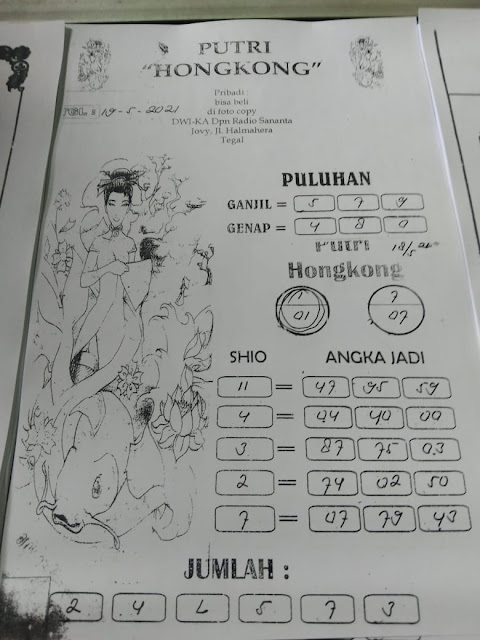 PUTRI
"HONGKONG"
Pribadi :
bisa beli
di foto copy
DWI-KA Dpn Radio Sananta
Jovy, Jl. Halmahera
Tegal
TGL : 19-5-2021
PULUHAN
GANJIL = 5 7 9
GENAP = 4 8 0
Putri
Hongkong
01 07
SHIO ANGKA JADI
11 = 47 95 59
4 = 44 40 00
3 = 87 75 03
2 = 74 02 50
7 = 07 79 43
JUMLAH :
2 4 L 5 7 3